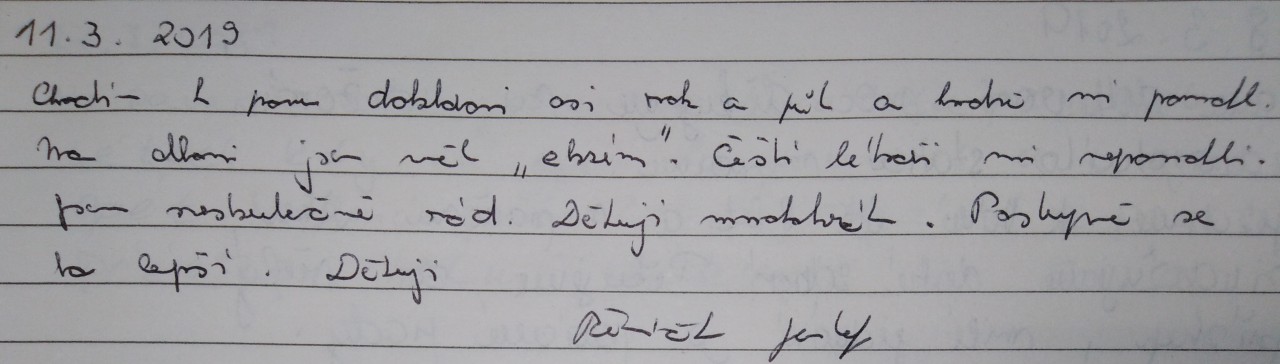 11.3. 2019
Chodím k panu doktorovi asi rok a půl a hodně mi pomohl.
Na dlani jsem měl „ekzém". Čeští lékaři mi nepomohli.
Jsem neskutečně rád. Děkuji mnohokrát. Postupně se
to lepší. Děkuji